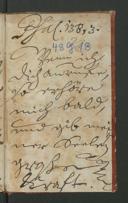 Psal. 138, 3.
489.18
Wenn ich
dich anruffe,
so erhöre
mich bald
und gib mei
ner Seelen
große
Kraft.